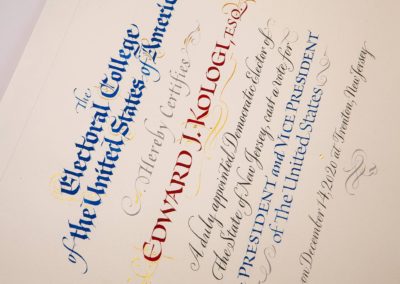 The
Electoral College
of the United States of America
Hereby Certifies
EDWARD J. KOLOGI, ESQ.
A duly appointed Democratic Elector of
the State of New Jersey, cast a vote for
PRESIDENT AND VICE PRESIDENT
of the United States
on December 14, 2020 at Trenton, New Jersey